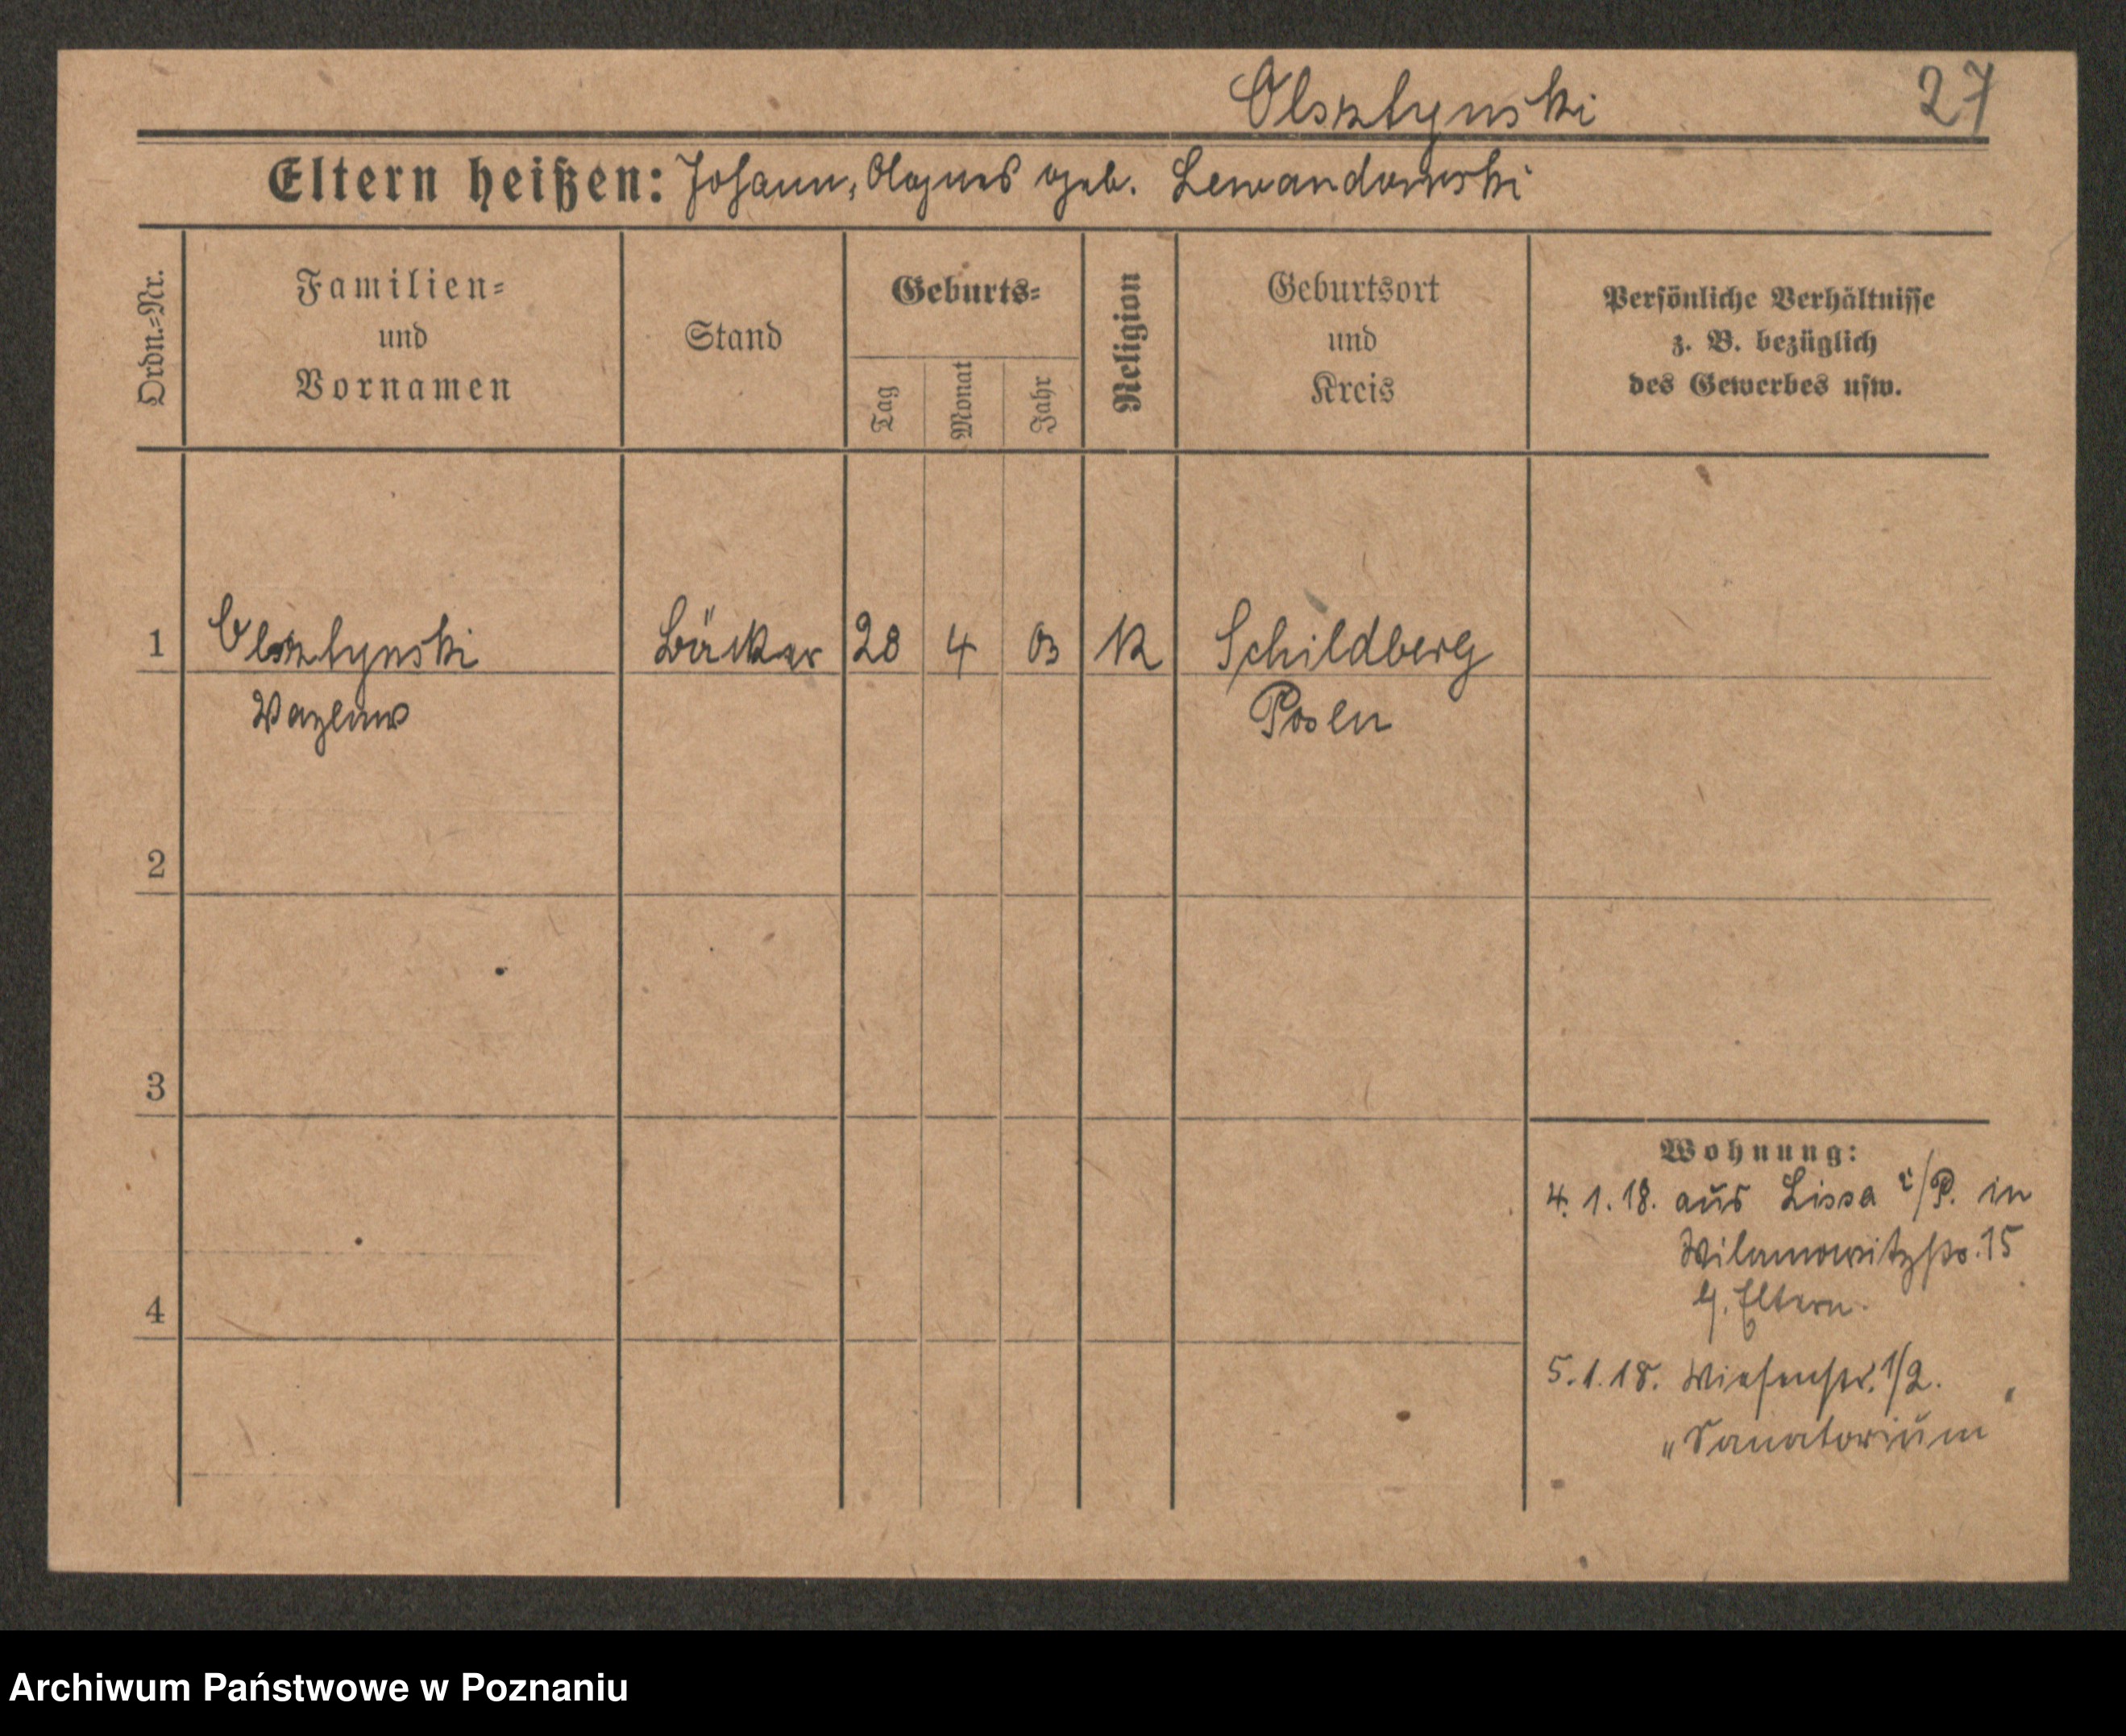 Olsztynski 27
Eltern heißen: Johann, Agnes geb. Lewandowski
Ordn.-Nr.
Familien-
und
Vornamen
Stand
Geburts-
Tag
Monat
Jahr
Religion
Geburtsort
und
Kreis
Persönliche Verhältnisse
z. B. bezüglich
des Gewerbes usw.
1 Olsztynski Bäcker 28 4 03 K Schildberg
Wazlaw Posen
2
3
Wohnung:
4. 1. 18. aus Lissa i/P. in
Wilamowitzstr. 15
b. Eltern.
4
5. 1. 18. Wiesenstr. 1/2.
„Sanatorium"
Archiwum Państwowe w Poznaniu